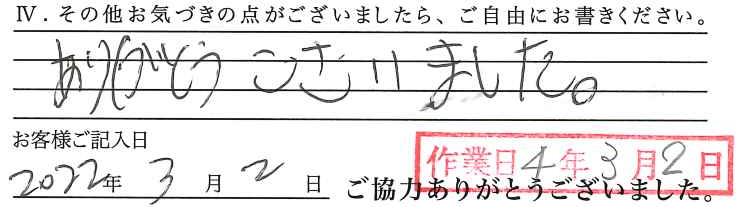 Ⅳ．その他お気づきの点がございましたら、ご自由にお書きください。
ありがとうございました。
お客様ご記入日
作業日4年3月2日
2022年3月2日 ご協力ありがとうございました。